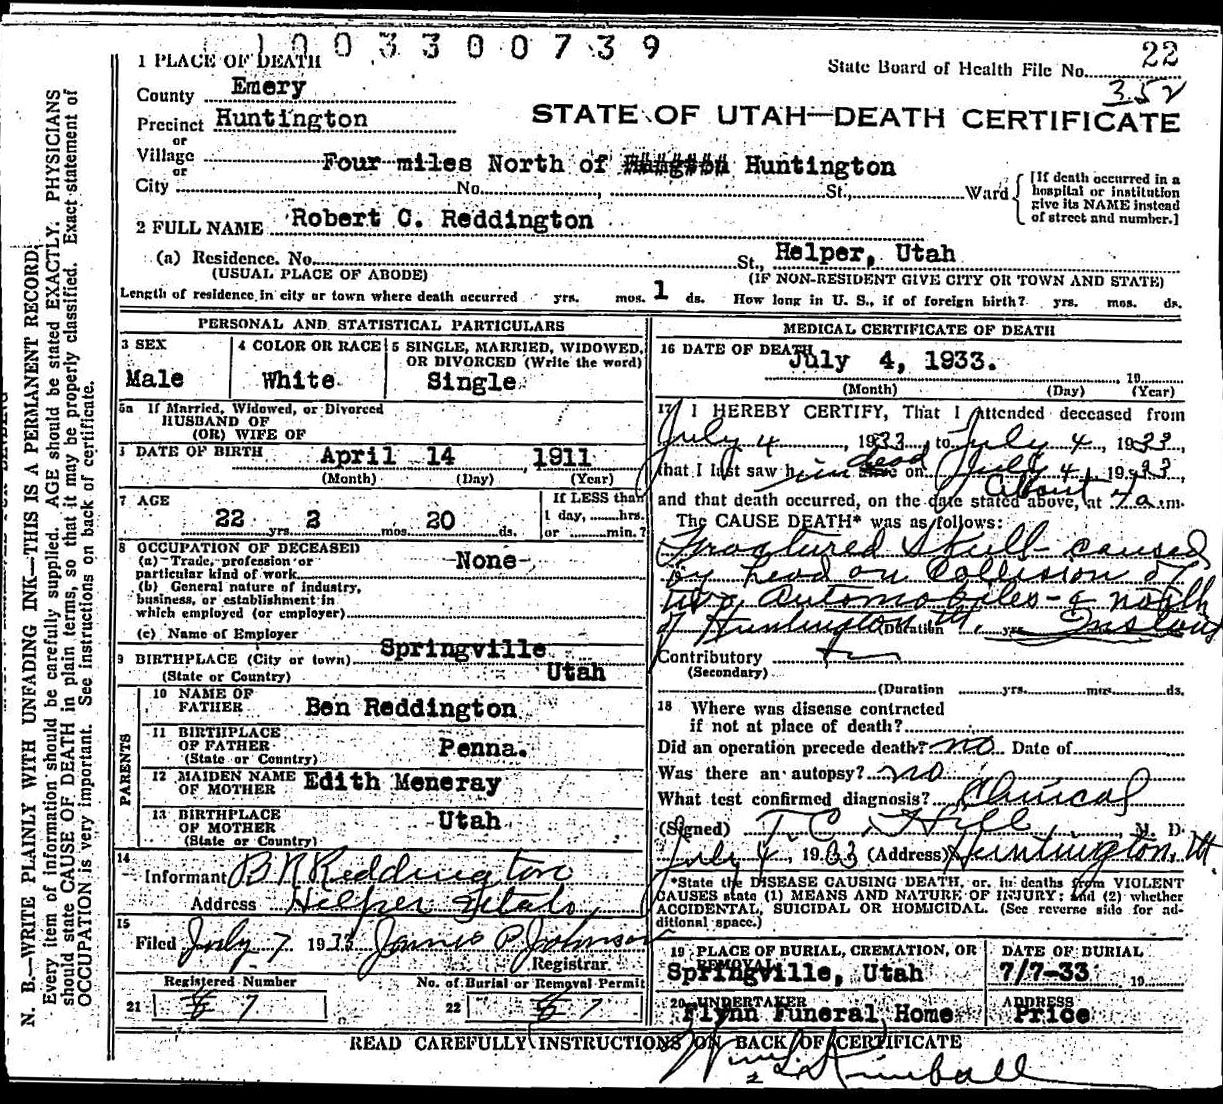 1003300739
22
State Board of Health File No.
352
1 PLACE OF DEATH
County Emery
Precinct Huntington
or
Village
or
Four miles North of Huntington
STATE OF UTAH—DEATH CERTIFICATE
City No. St., Ward
[If death occurred in a
hospital or institution
give its NAME instead
of street and number.]
2 FULL NAME Robert C. Reddington
(a) Residence. No. St., Helper, Utah
(USUAL PLACE OF ABODE) (IF NON-RESIDENT GIVE CITY OR TOWN AND STATE)
Length of residence in city or town where death occurred yrs. mos. 1 ds. How long in U. S., if of foreign birth? yrs. mos. ds.
PERSONAL AND STATISTICAL PARTICULARS
3 SEX
Male
4 COLOR OR RACE
White
5 SINGLE, MARRIED, WIDOWED,
OR DIVORCED (Write the word)
Single
5a If Married, Widowed, or Divorced
HUSBAND OF
(OR) WIFE OF
DATE OF BIRTH April 14, 1911
(Month) (Day) (Year)
7 AGE
22 yrs. 2 mos. 20 ds.
If LESS than
1 day, ......hrs.
or ......min.?
8 OCCUPATION OF DECEASED
(a) Trade, profession or
particular kind of work None
(b) General nature of industry,
business, or establishment in
which employed (or employer)
(c) Name of Employer
9 BIRTHPLACE (City or town) Springville
(State or Country) Utah
PARENTS
10 NAME OF
FATHER Ben Reddington
11 BIRTHPLACE
OF FATHER Penna.
(State or Country)
12 MAIDEN NAME
OF MOTHER Edith Meneray
13 BIRTHPLACE
OF MOTHER Utah
(State or Country)
14
Informant B N Reddington
Address Helper Utah
15
Filed July 7 1933 James P. Johnson
Registrar
Registered Number
21 7
No. of Burial or Removal Permit
22 7
MEDICAL CERTIFICATE OF DEATH
16 DATE OF DEATH July 4, 1933. 19
(Month) (Day) (Year)
17 I HEREBY CERTIFY, That I attended deceased from
July 4, 1933, to July 4, 1933,
that I last saw him dead on July 4, 1933,
and that death occurred, on the date stated above, at about 4 a.m.
The CAUSE DEATH* was as follows:
Fractured Skull - caused
by head on Collision of
two automobiles - 4 north
of Huntington Ut. (Duration yrs. Instant
Contributory
(Secondary)
(Duration yrs. mos. ds.
18 Where was disease contracted
if not at place of death?
Did an operation precede death? no Date of
Was there an autopsy? no
What test confirmed diagnosis? Clinical
(Signed) T. C. Hill, M. D.
July 4, 1933 (Address) Huntington, Ut
*State the DISEASE CAUSING DEATH, or, in deaths from VIOLENT
CAUSES state (1) MEANS AND NATURE OF INJURY; and (2) whether
ACCIDENTAL, SUICIDAL OR HOMICIDAL. (See reverse side for ad-
ditional space.)
19 PLACE OF BURIAL, CREMATION, OR
REMOVAL
Springville, Utah
DATE OF BURIAL
7/7-33 19
20 UNDERTAKER
Flynn Funeral Home
ADDRESS
Price
READ CAREFULLY INSTRUCTIONS ON BACK OF CERTIFICATE
Kimball
N. B.—WRITE PLAINLY WITH UNFADING INK—THIS IS A PERMANENT RECORD.
Every item of information should be carefully supplied. AGE should be stated EXACTLY. PHYSICIANS
should state CAUSE OF DEATH in plain terms, so that it may be properly classified. Exact statement of
OCCUPATION is very important. See instructions on back of certificate.